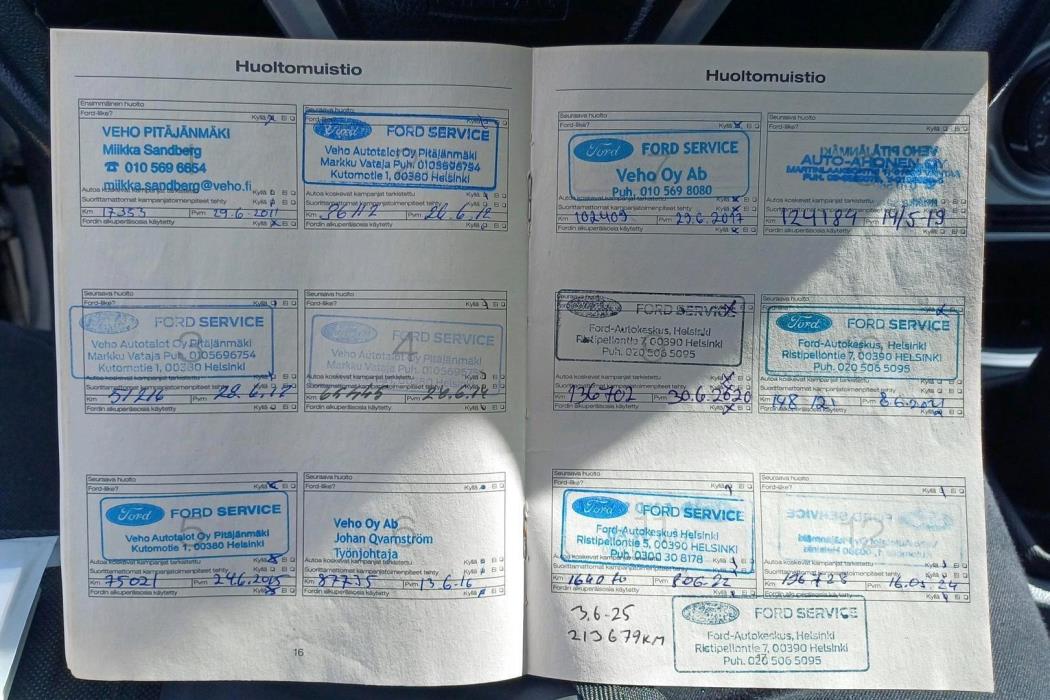 Huoltomuistio
Ensimmäinen huolto
Ford-liike? Kyllä Ei
VEHO PITÄJÄNMÄKI
Miikka Sandberg
☎ 010 569 6654
miikka.sandberg@veho.fi
Autoa koskevat kampanjat tarkistettu Kyllä Ei
Suorittamattomat kampanjatoimenpiteet tehty Kyllä Ei
Km 17353 Pvm 29.6.2011
Fordin alkuperäisosia käytetty Kyllä Ei
Seuraava huolto
Ford-liike? Kyllä Ei
Ford FORD SERVICE
Veho Autotalot Oy Pitäjänmäki
Markku Vataja Puh. 0105696754
Kutomotie 1, 00380 Helsinki
Autoa koskevat kampanjat tarkistettu Kyllä Ei
Suorittamattomat kampanjatoimenpiteet tehty Kyllä Ei
Km Pvm 26.6.12
Fordin alkuperäisosia käytetty Kyllä Ei
Seuraava huolto
Ford-liike? Kyllä Ei
3
Ford FORD SERVICE
Veho Autotalot Oy Pitäjänmäki
Markku Vataja Puh. 0105696754
Kutomotie 1, 00380 Helsinki
Autoa koskevat kampanjat tarkistettu Kyllä Ei
Suorittamattomat kampanjatoimenpiteet tehty Kyllä Ei
Km 51216 Pvm
Fordin alkuperäisosia käytetty Kyllä Ei
Seuraava huolto
Ford-liike? Kyllä Ei
4
Ford FORD SERVICE
Veho Autotalot Oy Pitäjänmäki
Markku Vataja Puh.
Kutomotie 1, 00380 Helsinki
Autoa koskevat kampanjat tarkistettu Kyllä Ei
Suorittamattomat kampanjatoimenpiteet tehty Kyllä Ei
Km 65445 Pvm
Fordin alkuperäisosia käytetty Kyllä Ei
Seuraava huolto
Ford-liike? Kyllä Ei
5
Ford FORD SERVICE
Veho Autotalot Oy Pitäjänmäki
Kutomotie 1, 00380 Helsinki
Autoa koskevat kampanjat tarkistettu Kyllä Ei
Suorittamattomat kampanjatoimenpiteet tehty Kyllä Ei
Km 75021 Pvm 24.6.2015
Fordin alkuperäisosia käytetty Kyllä Ei
Seuraava huolto
Ford-liike? Kyllä Ei
6
Veho Oy Ab
Johan Qvarnström
Työnjohtaja
Autoa koskevat kampanjat tarkistettu Kyllä Ei
Suorittamattomat kampanjatoimenpiteet tehty Kyllä Ei
Km 87735 Pvm 13.6.16
Fordin alkuperäisosia käytetty Kyllä Ei
16
Huoltomuistio
Seuraava huolto
Ford-liike? Kyllä Ei
Ford FORD SERVICE
Veho Oy Ab
Puh. 010 569 8080
Autoa koskevat kampanjat tarkistettu Kyllä Ei
Suorittamattomat kampanjatoimenpiteet tehty Kyllä Ei
Km 102409 Pvm 29.6.2017
Fordin alkuperäisosia käytetty Kyllä Ei
Seuraava huolto
Ford-liike? Kyllä Ei
AUTO-AHONEN OY
Autoa koskevat kampanjat tarkistettu Kyllä Ei
Suorittamattomat kampanjatoimenpiteet tehty
Km 124184 Pvm 14/5-19
Fordin alkuperäisosia käytetty Kyllä Ei
Seuraava huolto
Ford-liike? Kyllä Ei
FORD SERVICE
Ford-Autokeskus, Helsinki
Ristipellontie 7, 00390 HELSINKI
Puh. 020 506 5095
Autoa koskevat kampanjat tarkistettu Kyllä Ei
Suorittamattomat kampanjatoimenpiteet tehty Kyllä Ei
Km 136702 Pvm 30.6.2020
Fordin alkuperäisosia käytetty Kyllä Ei
Seuraava huolto
Ford FORD SERVICE
Ford-Autokeskus, Helsinki
Ristipellontie 7, 00390 HELSINKI
Puh. 020 506 5095
Autoa koskevat kampanjat tarkistettu Kyllä Ei
Suorittamattomat kampanjatoimenpiteet tehty Kyllä Ei
Km 148121 Pvm 8.6.2021
Fordin alkuperäisosia käytetty Kyllä Ei
Seuraava huolto
Ford-liike? Kyllä Ei
11
Ford FORD SERVICE
Ford-Autokeskus Helsinki
Ristipellontie 5, 00390 HELSINKI
Puh. 0300 30 8178
Autoa koskevat kampanjat tarkistettu Kyllä Ei
Suorittamattomat kampanjatoimenpiteet tehty Kyllä Ei
Km Pvm
Fordin alkuperäisosia käytetty Kyllä Ei
Seuraava huolto
Ford-liike? Kyllä Ei
Autoa koskevat kampanjat tarkistettu Kyllä Ei
Suorittamattomat kampanjatoimenpiteet tehty Kyllä Ei
Km Pvm 24
Fordin alkuperäisosia käytetty Kyllä Ei
3.6-25
213679KM
FORD SERVICE
Ford-Autokeskus, Helsinki
Ristipellontie 7, 00390 HELSINKI
Puh. 020 506 5095
17